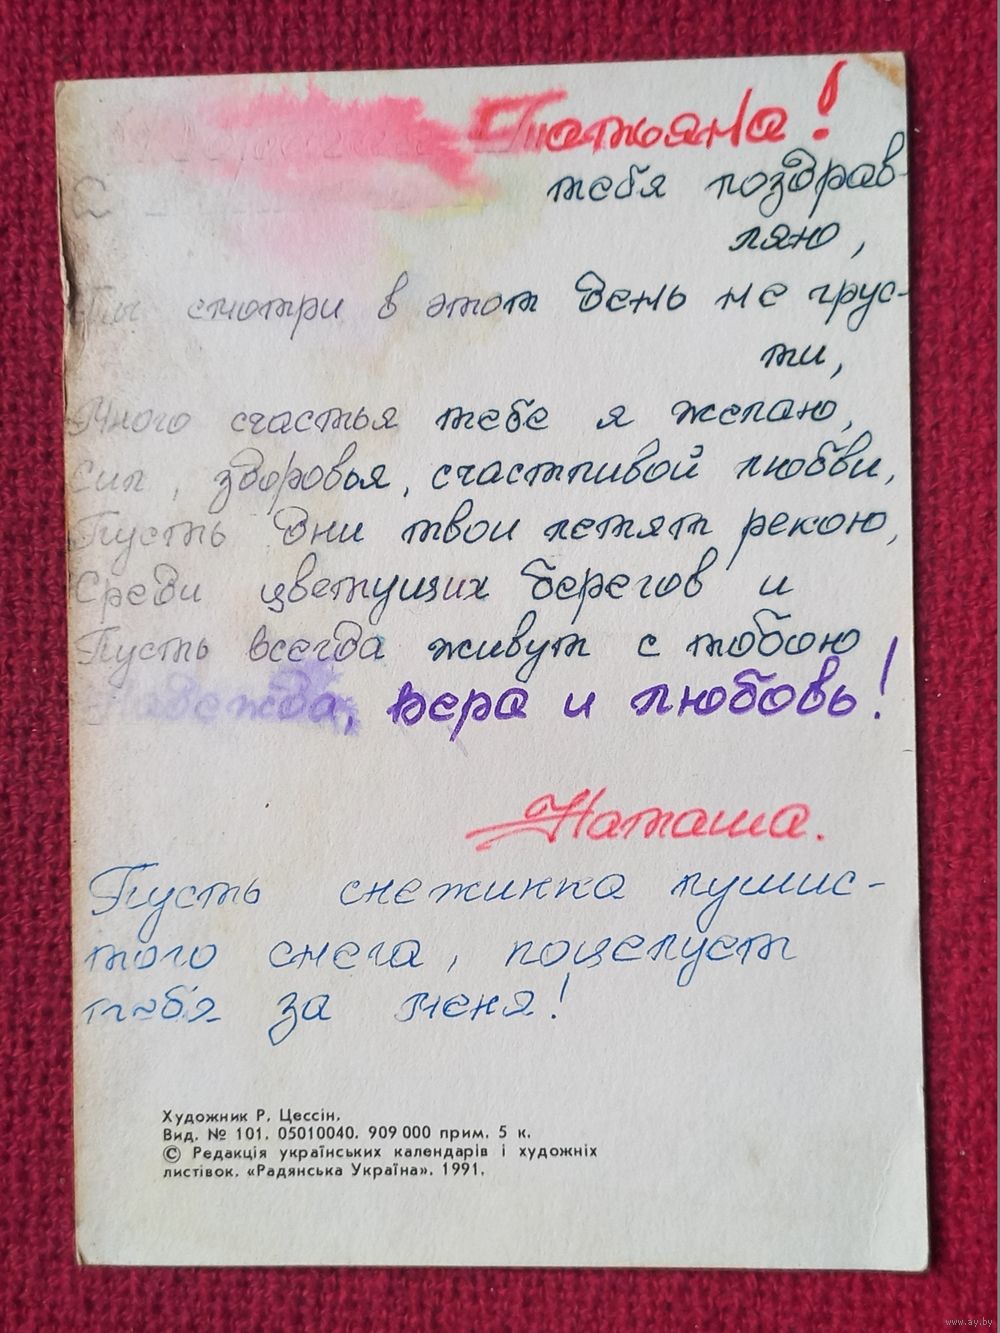 Татьяна!
С тебя поздрав-
ляю,
Ты смотри в этот день не грус-
ти,
Много счастья тебе я желаю,
Сил, здоровья, счастливой любви,
Пусть дни твои летят рекою,
Среди цветущих берегов и
Пусть всегда живут с тобою
Надежда, вера и любовь!
Наташа.
Пусть снежинка пушис-
того снега, поцелует
тебя за меня!
Художник Р. Цессін.
Вид. № 101. 05010040. 909 000 прим. 5 к.
© Редакція українських календарів і художніх
листівок. «Радянська Україна». 1991.
www.ay.by